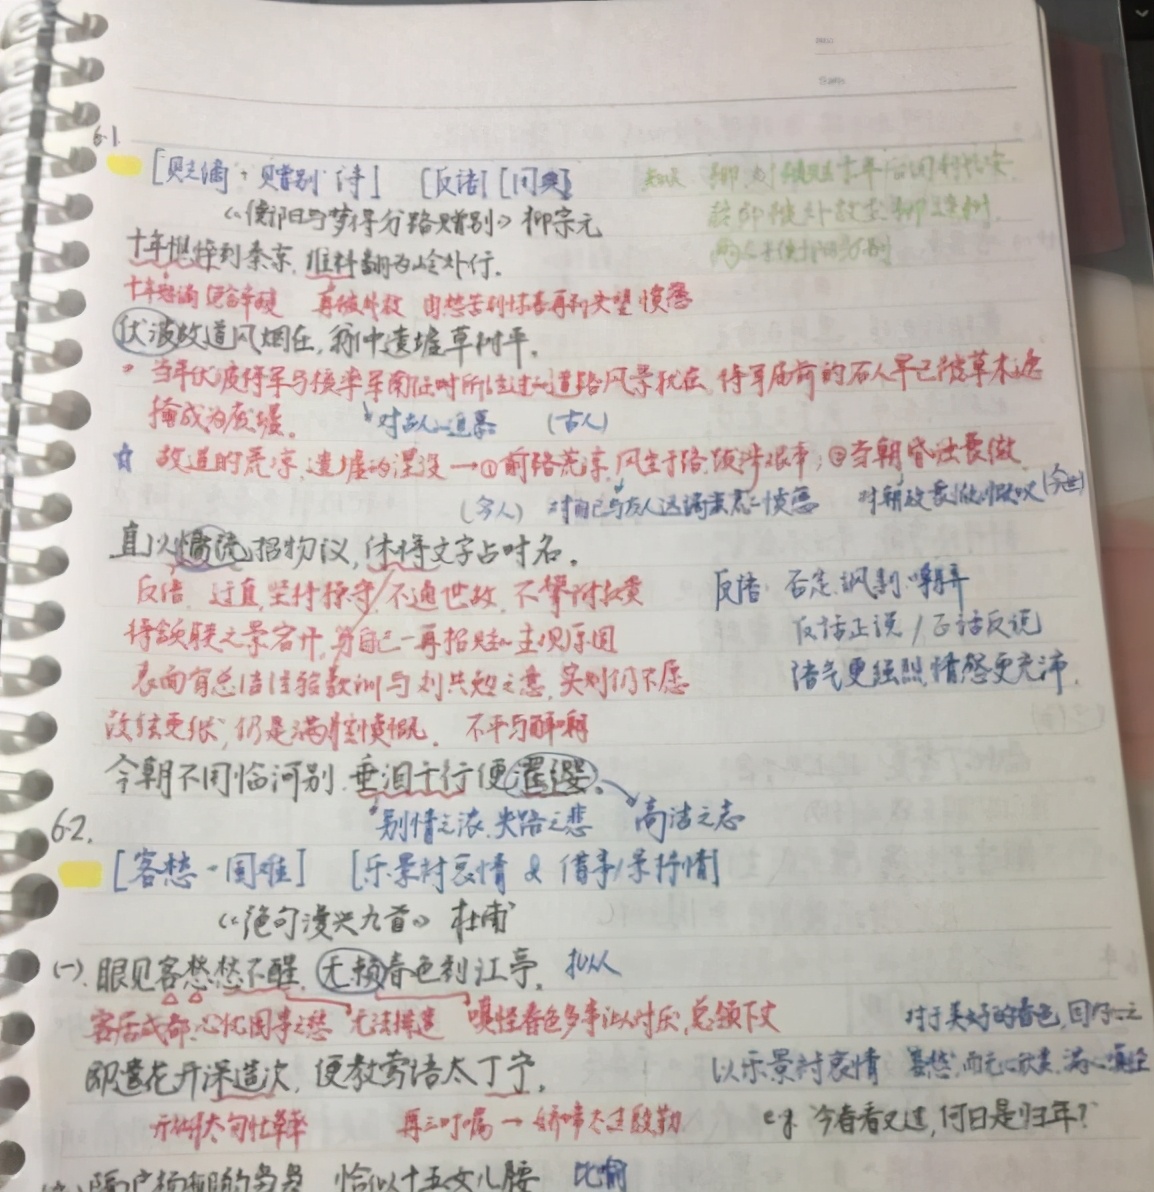 6.1
[贬谪+赠别诗] [反语] [用典]
《衡阳与梦得分路赠别》柳宗元
十年憔悴到秦京,谁料翻为岭外行。
再被外放 由愁苦到惊喜再到失望愤懑
伏波故道风烟在,翁仲遗墟草树平。
当年伏波将军与楼率军南征时所经过的道路风景犹在,将军庙前的石人早已被草木遮
掩成为废墟。 对古人追慕 (古人)
☆ 故道的荒凉,遗墟的湮没→①前路荒凉,风尘于路,跋涉艰辛;②当朝昏浊衰微
(今人) 对自己与友人远谪蛮荒的愤懑 对朝政衰微慨叹(今世)
直以慵疏招物议,休将文字占时名。
反语 过直,坚持操守/不通世故,不攀附权贵 反语:否定、讽刺、嘲弄
将颔联之景宕开,写自己一再招贬的主观原因 反话正说/正话反说
表面有总结经验教训与刘共勉之意,实则仍不愿 语气更强烈,情感更充沛.
改弦更张,仍是满腔愤慨. 不平与
今朝不用临河别,垂泪千行便濯缨。
别情之浓,失路之悲 高洁之志
6.2.
[客愁-国难] [乐景衬哀情 & 借事/景抒情]
《绝句漫兴九首》杜甫
(一).眼见客愁愁不醒,无赖春色到江亭。 拟人
客居成都,心忧国事之愁 无法排遣 嗔怪春色多事 总领下文 对于美好的春色,回以
即遣花开深造次,便教莺语太丁宁。 以乐景衬哀情 客愁,而无心欣赏,满心嗔怪
再三叮嘱→娇啼太过殷勤 e.g. 今春看又过,何日是归年?
隔户杨柳弱袅袅 恰似十五女儿腰 比喻